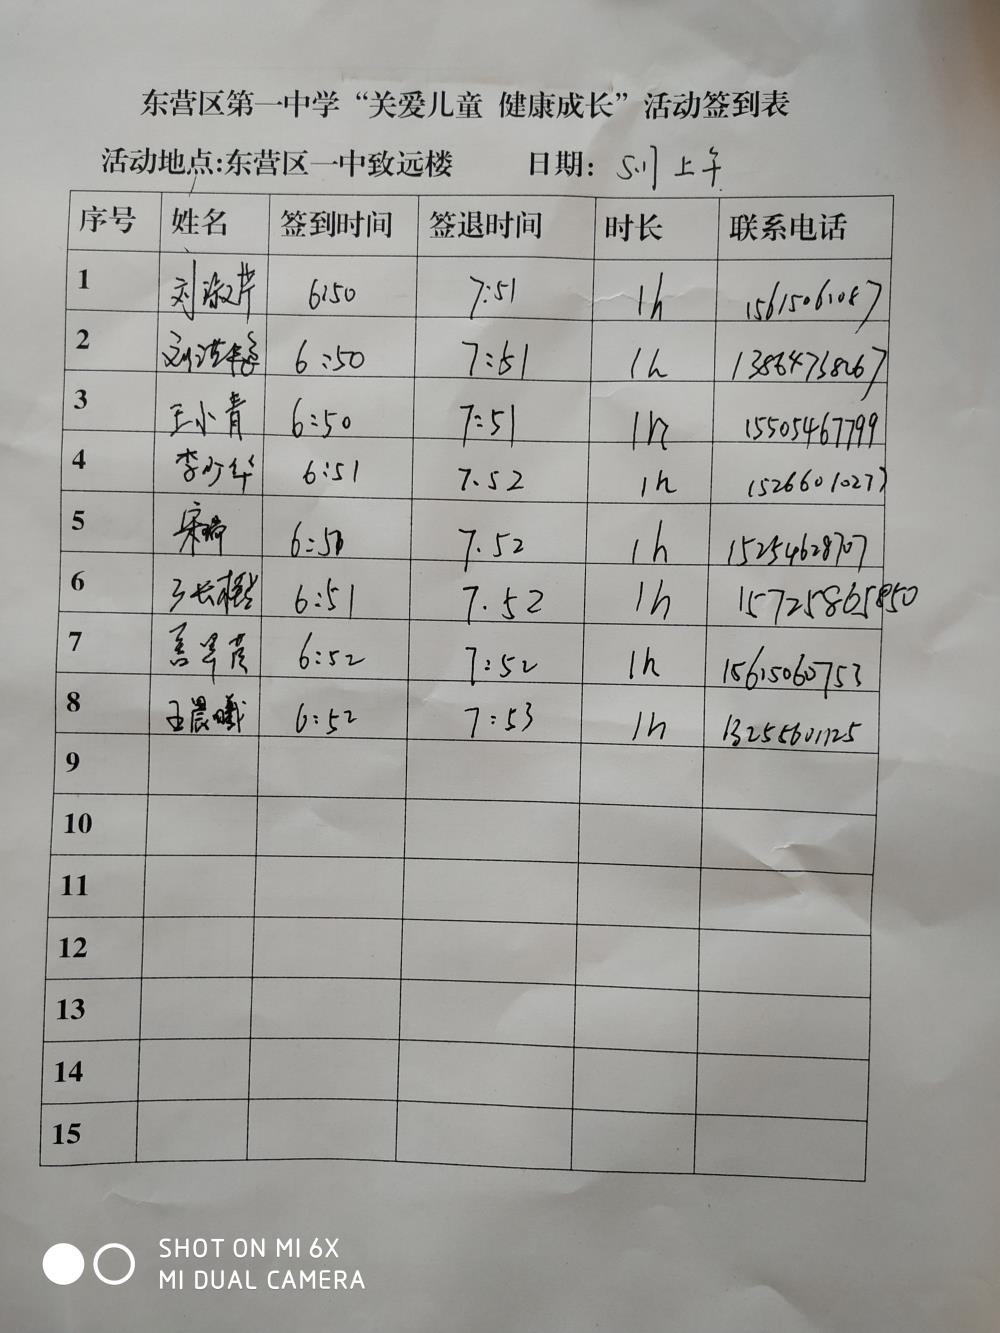 东营区第一中学“关爱儿童 健康成长”活动签到表
活动地点:东营区一中致远楼 日期: 上午
序号 姓名 签到时间 签退时间 时长 联系电话
1 刘淑芹 6:50 7:51 1h 15615061087
2 6:50 7:51 1h 13864738267
3 王小青 6:50 7:51 1h 15505467799
4 6:51 7.52 1h 15266010277
5 宋瑞 7.52 1h 15254628707
6 6:51 7.52 1h 15725865850
7 6:52 7:52 1h 15615060753
8 王晨曦 6:52 7:53 1h 13255601125
9
10
11
12
13
14
15
SHOT ON MI 6X
MI DUAL CAMERA